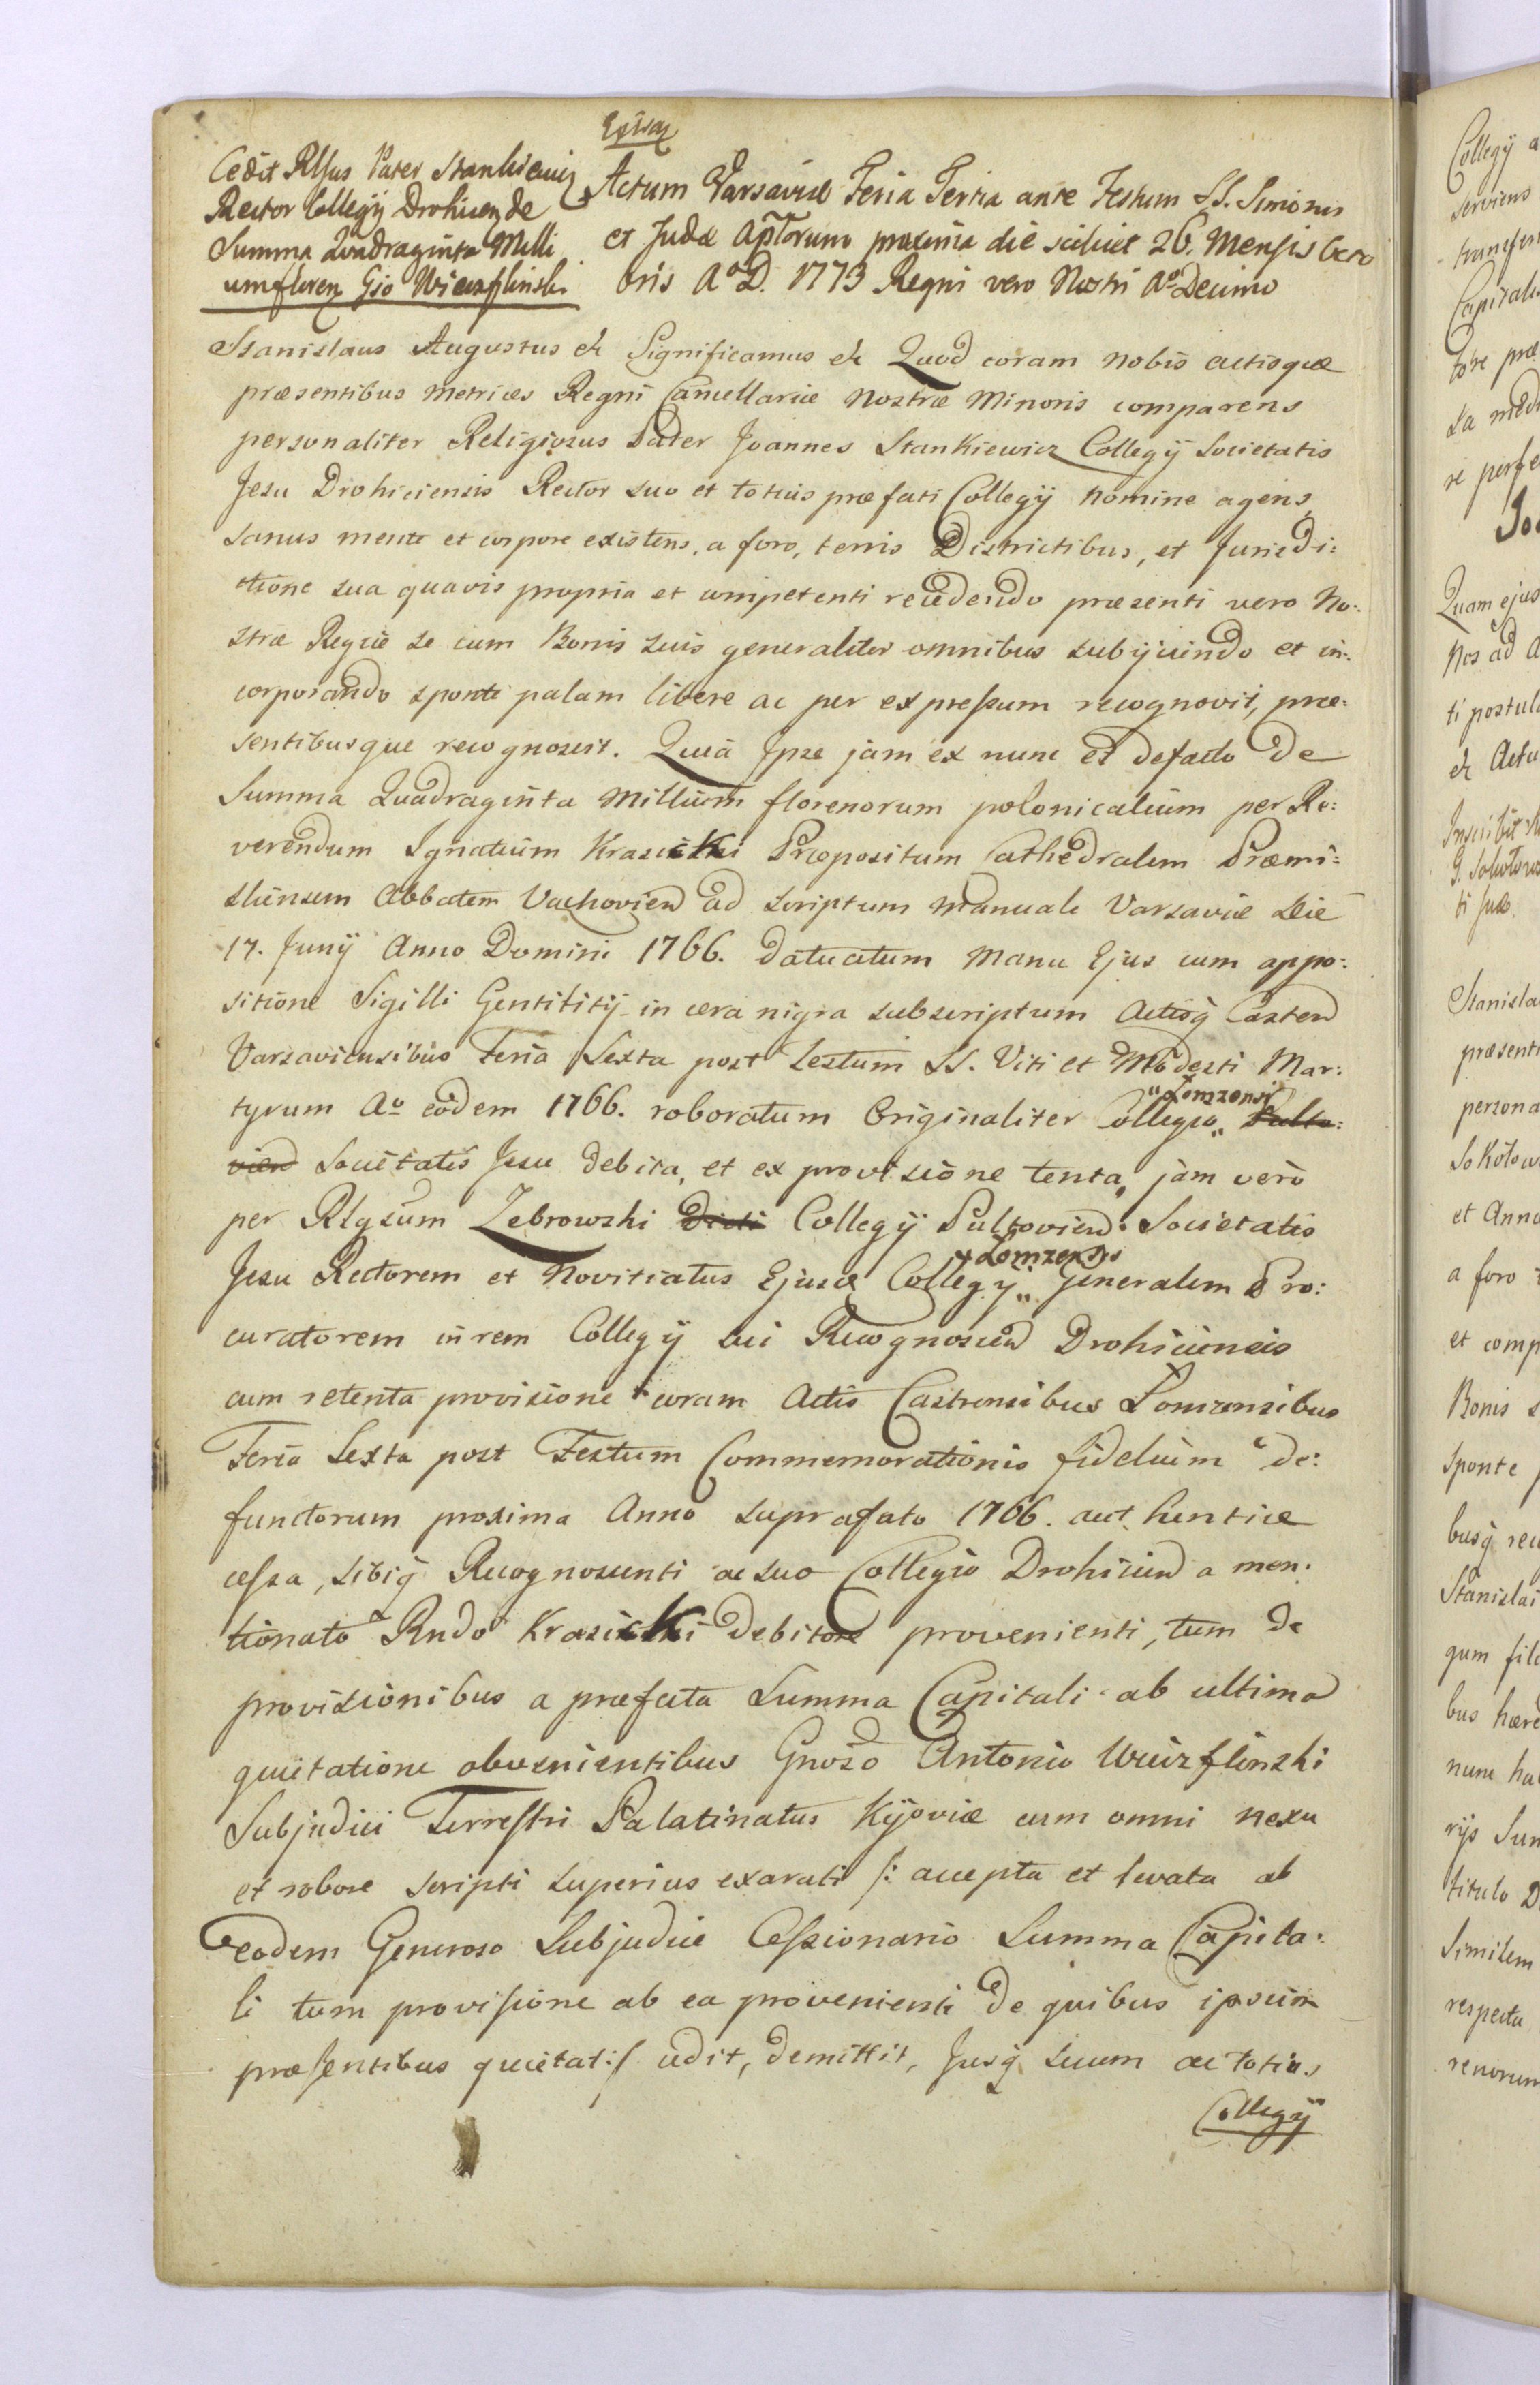 Cedit Rlgsus Pater Stankiewicz
Rector Collegÿ Drohicen de
Summa Quadraginta Milli
umfloren Gso Wierzflinski
Actum Varsaviæ Feria Tertia ante Festum SS. Simonis
et Judæ Aptorum proxima die scilicet 26. Mensis Octo
bris Aº D. 1773 Regni vero Nostri Aº Decimo
Stanislaus Augustus etc Significamus etc Quod coram nobis actisque
præsentibus Metrices Regni Cancellariæ Nostræ Minoris comparens
personaliter Religiosus Pater Joannes Stankiewicz Collegÿ Societatis
Jesu Drohiciensis Rector suo et totius præfati Collegÿ Nomine agens,
sanus mente et corpore existens, a foro, terris Districtibus, et Jurisdi:
ctione sua quavis propria et competenti recedendo præsenti vero No:
stræ Regiæ se cum Bonis suis generaliter omnibus subÿciendo et in:
corporando sponte palam libere ac per expressum recognovit, præ:
sentibusque recognoscit. Quia Ipse jam ex nunc et defacto de
Summa Quadraginta Millium florenorum polonicalium per Re:
verendum Ignatium Krasicki Præpositum Cathedralem Præmi:
sliensem Abbatem Vachovien ad scriptum Manuale Varsaviæ Die
17. Junÿ Anno Domini 1766. datuatum Manu Ejus cum appo:
sitione Sigilli Gentilitÿ in cera nigra subscriptum Actisq Castren
Varsaviensibus Feria Sexta post Festum SS. Viti et Modesti Mar:
tyrum Aº eodem 1766. roboratum Originaliter Collegio „ Pulto:
„Lomzensi
vien Societatis Jesu debita, et ex provisione tenta, jam vero
per Rlgsum Zebrowski dicti Collegÿ Pultovien. Societatis
Jesu Rectorem et Novitiatus Ejusd Collegÿ „ Generalem Pro:
+ Lomzensis
curatorem in rem Collegÿ sui Recognoscen Drohiciensis
cum retenta provisione coram Actis Castrensibus Lomzensibus
Feria Sexta post Festum Commemorationis fidelium de:
functorum proxima Anno suprafato 1766. authentice
cessa, sibiq Recognoscenti ac suo Collegio Drohicien a men:
tionato Rndo Krasicki Debitore provenienti, tum de
provisionibus a præfata Summa Capitali ab ultima
quietatione obvenientibus Gnoso Antonio Wierzflinski
Subjudici Terrestri Palatinatus Kÿoviæ cum omni nexu
et robore scripti superius exarati /: accepta et levata ab
eodem Generoso Subjudice Cessionario Summa Capita:
li tum provisione ab ea provenienti de quibus ipsum
præsentibus quietat :/ cedit, demittit, Jusq suum ac totius
Collegÿ